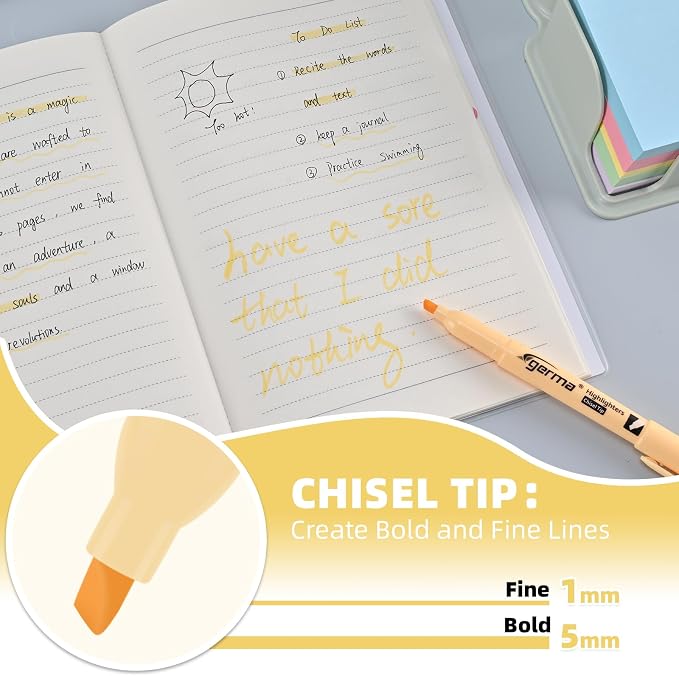 is a magic
are wafted to
nnot enter in
pages, we find
an adventure, a
souls and a window
revolutions.
Too hot!
To Do List
① Recite the words
and text
② keep a journal
③ Practice Swimming
have a sore
that I did
nothing.
germa®
Highlighters
Chisel Tip
CHISEL TIP:
Create Bold and Fine Lines
Fine 1mm
Bold 5mm